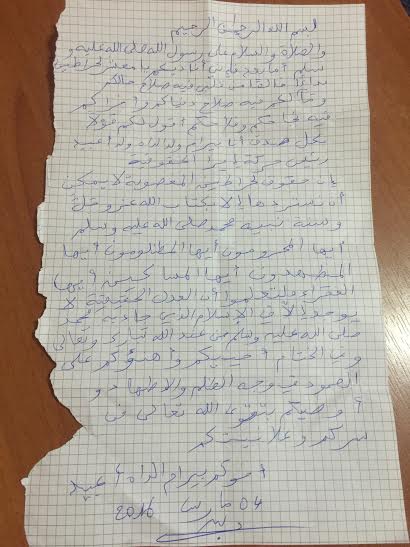 بسم الله الرحمن الرحيم
والصلاة والسلام على رسول الله صلى الله عليه و
سلم أما بعد فإنني أناديكم يا معشر لحراطين
نداءا خالصا من قلبي فيه صلاح حالكم
ومآلكم فيه صلاح دنياكم وأخراكم
فيه نجاحكم وفلاحكم أقول لكم قولا
بكل صدق أنا بيرام ولد الداه ولد اعبيد
رئيس حركة إيرا الحقوقية
بأن حقوق لحراطين المغصوبة لا يمكن
أن يستردها إلا بكتاب الله عز وجل
وسنة نبيه محمد صلى الله عليه وسلم
أيها المحرومون أيها المظلومون أيها
المضطهدون أيها المساكين أيها
الفقراء فلتعلموا أن العدل الحقيقي لا
يوجد إلا في الإسلام الذي جاء به محمد
صلى الله عليه وسلم من عند الله تبارك وتعالى
وفي الختام أحييكم وأهنؤكم على
الصمود في وجه الظلم والاضطهاد و
أوصيكم بتقوى الله تعالى في
سركم وعلانيتكم
أخوكم بيرام الداه اعبيد
04 مارس 2016